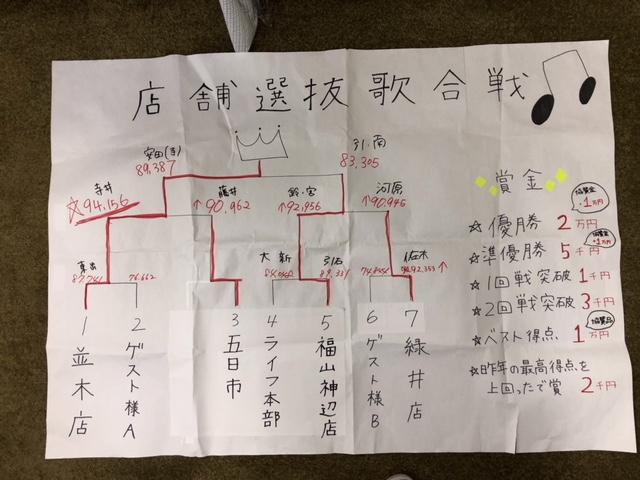 店舗選抜歌合戦
安田(寺)
89,387
引・南
83,305
寺井
☆94,156
藤井
↑90,962
鈴・宮
↑92,956
河原
↑90,946
76,662
大 新
引石
佐木
1 並木店
2 ゲスト様A
3 五日市
4 ライフ本部
5 福山神辺店
6 ゲスト様B
7 緑井店
賞金
協賛金
+1万円
☆優勝 2万円
協賛金
+1万円
☆準優勝 5千円
☆1回戦突破 1千円
☆2回戦突破 3千円
協賛品
☆ベスト得点 1万円
☆昨年の最高得点を
上回ったで賞 2千円